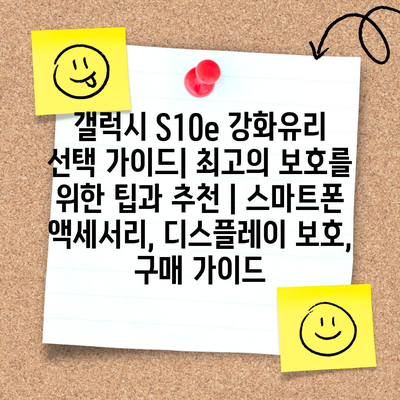 갤럭시 S10e 강화유리
선택 가이드| 최고의 보호를
위한 팁과 추천 | 스마트폰
액세서리, 디스플레이 보호,
구매 가이드